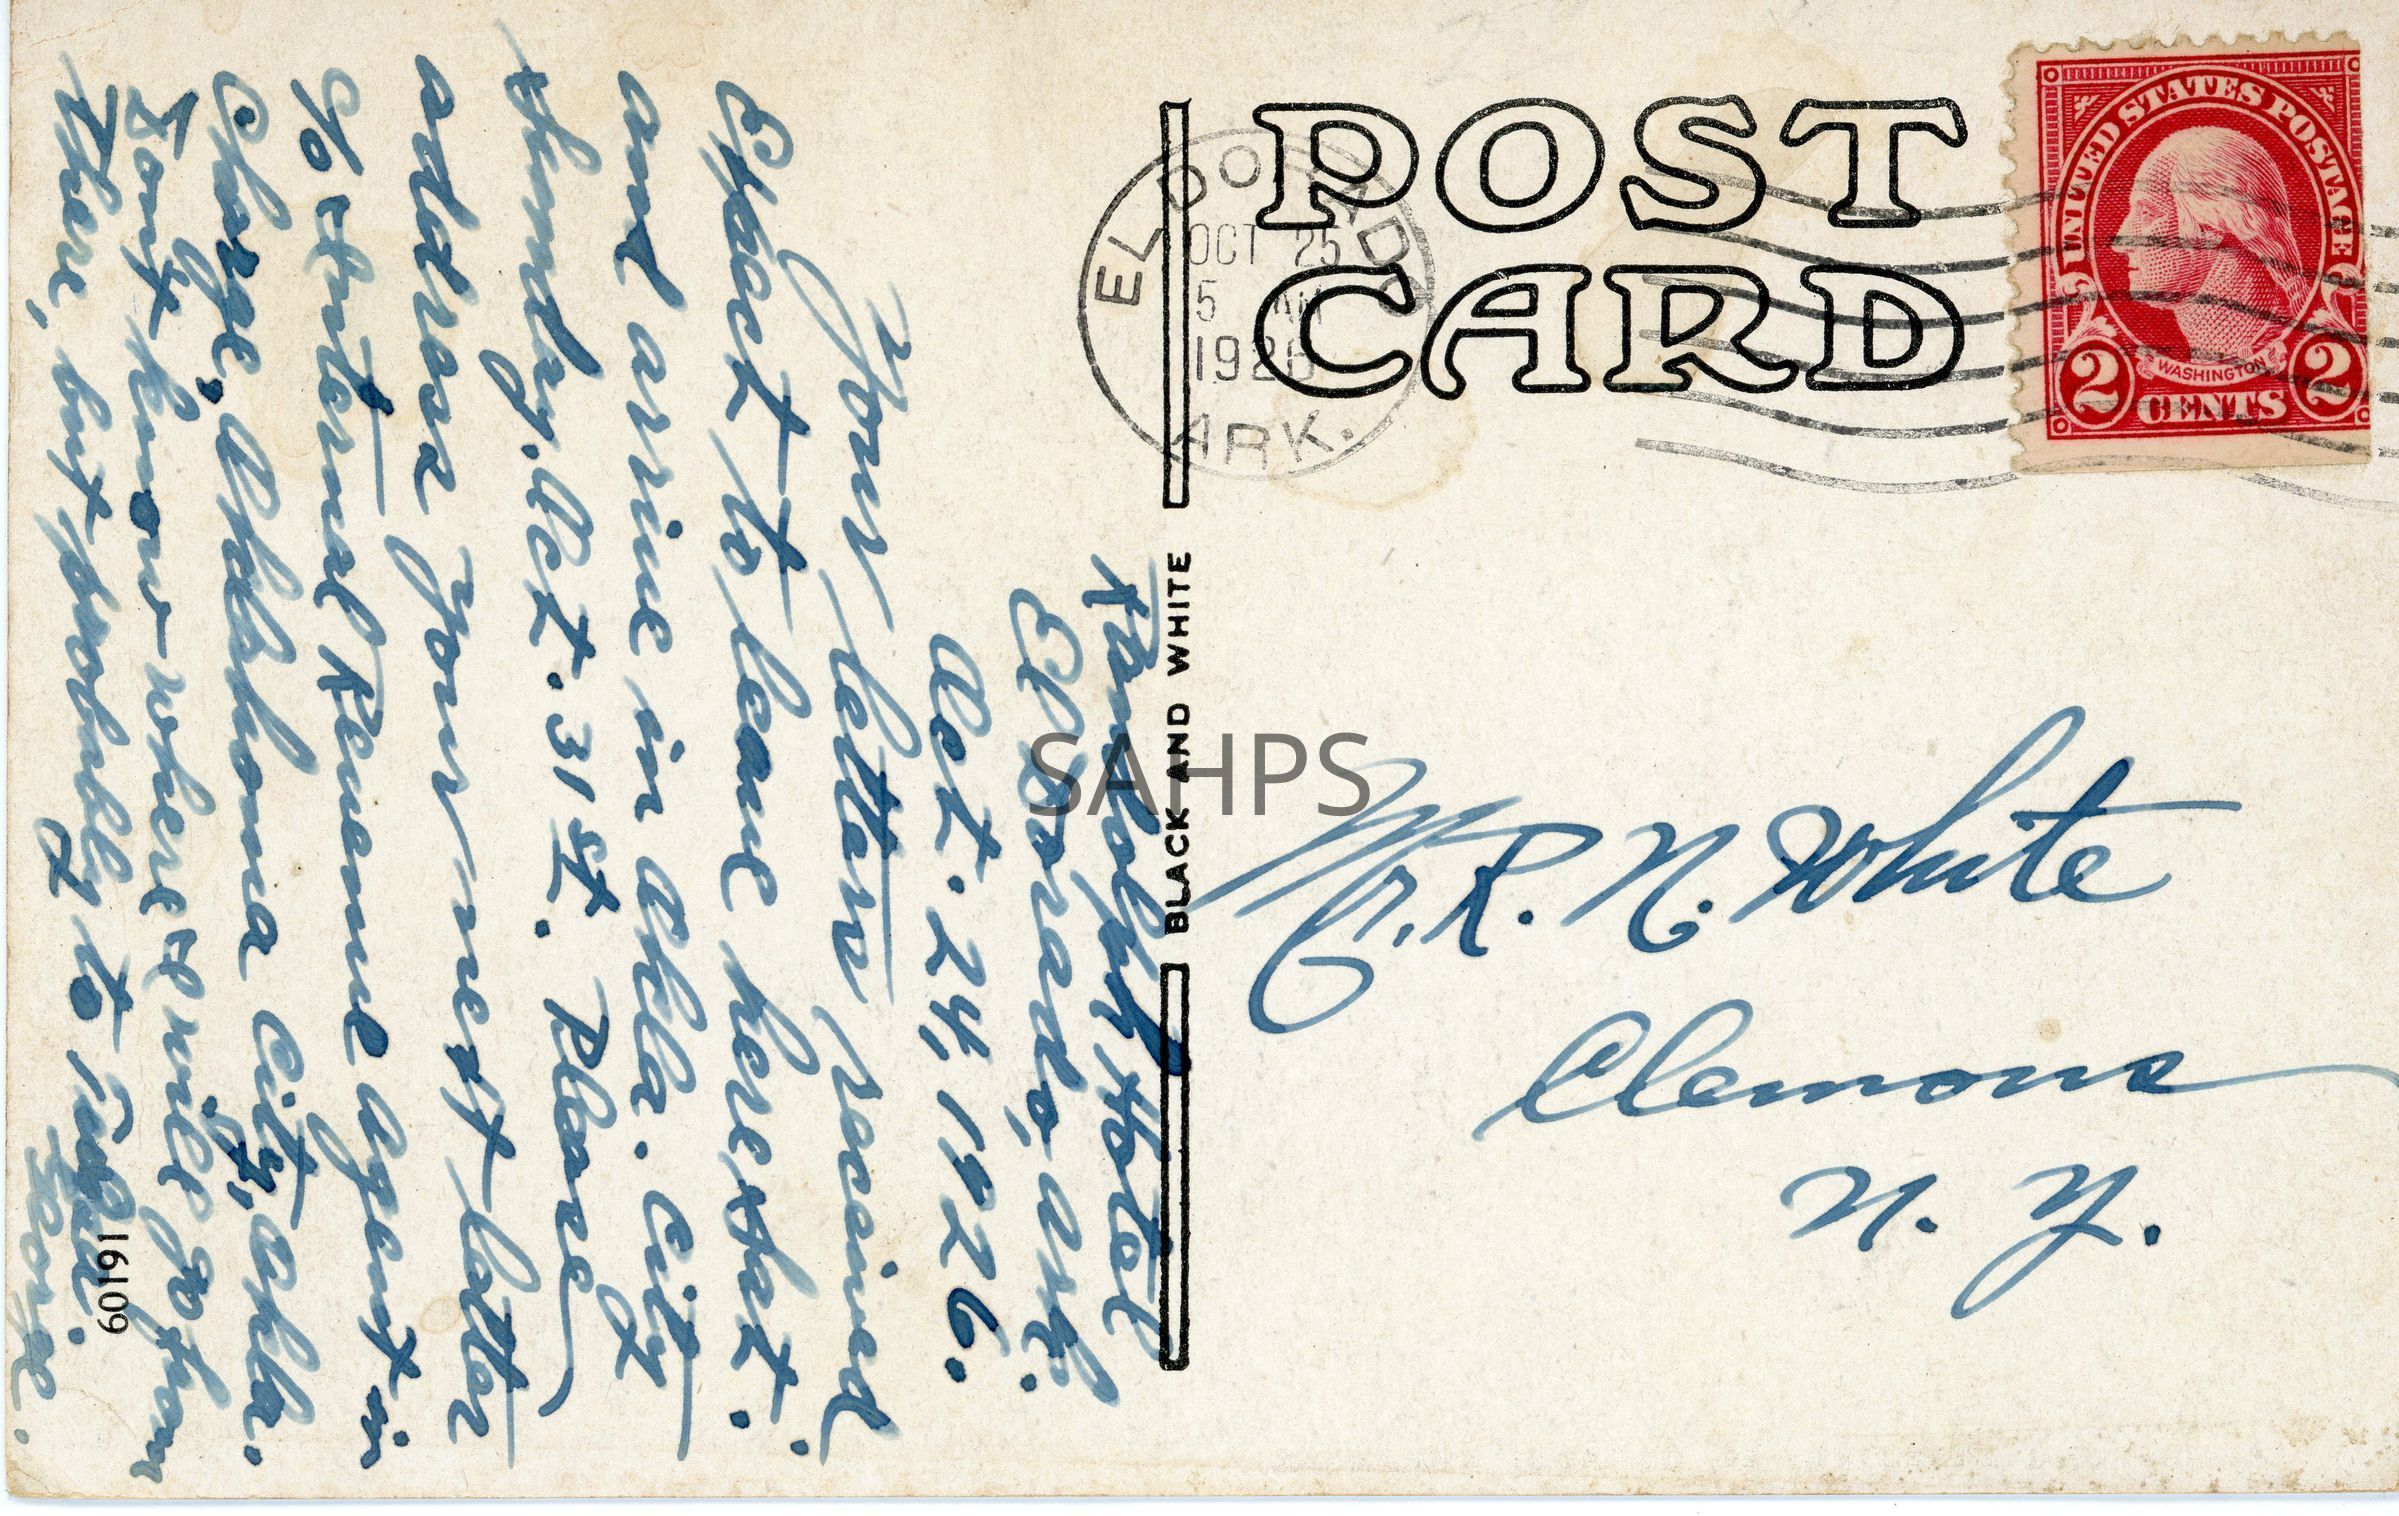 Randolph Hotel
El Dorado, Ark.
Oct. 24, 1926.
Your letters received.
Expect to leave here Sat.
and arrive in Okla. City
Sunday, Oct. 31st. Please
address your next letter
% Internal Revenue agent in
Charge, Oklahoma City, Okla.
Dont know where I will go from
there, but probably to Tulsa.
George.
60191
BLACK AND WHITE
POST
CARD
EL DORADO
OCT 25
5 AM
1926
ARK.
UNITED STATES POSTAGE
WASHINGTON
2 CENTS 2
Mr. R. N. White
Clemons
N. Y.
SAHPS